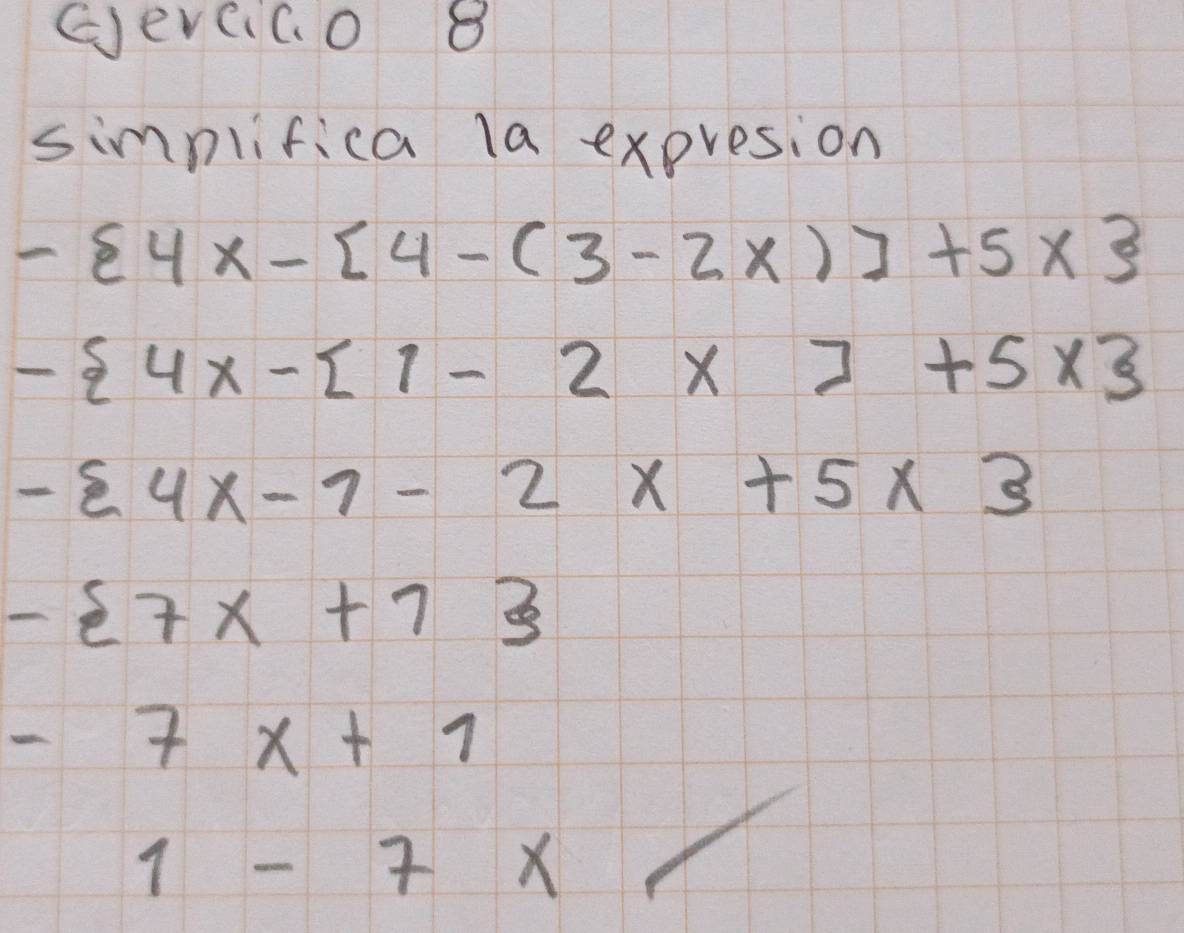 Ejercicio 8
simplifica la expresion
-{4x-[4-(3-2x)]+5x}
-{4x-[1-2x]+5x}
-{4x-1-2x+5x}
-{7x+1}
-7x+1
1-7x